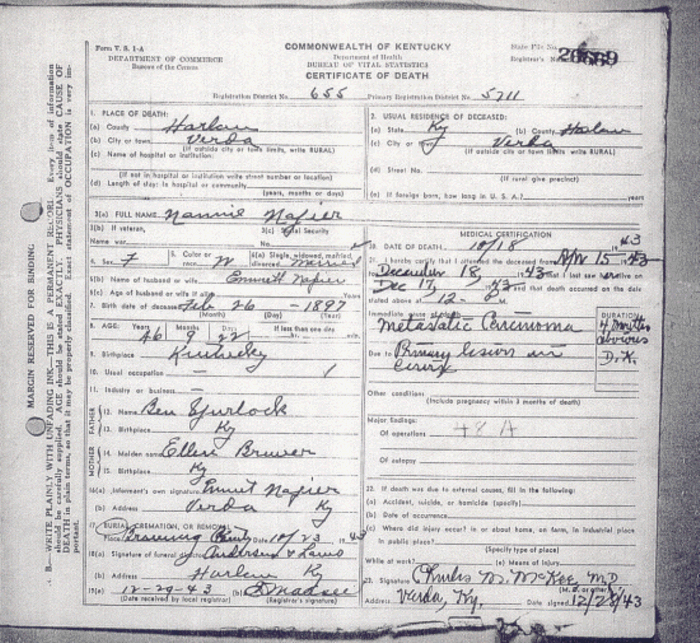 Form V. S. 1-A
DEPARTMENT OF COMMERCE
Bureau of the Census
COMMONWEALTH OF KENTUCKY
Department of Health
BUREAU OF VITAL STATISTICS
CERTIFICATE OF DEATH
State File No.
Registrar's No.
Registration District No. 655 Primary Registration District No. 5711
MARGIN RESERVED FOR BINDING
B.—WRITE PLAINLY WITH UNFADING INK—THIS IS A PERMANENT RECORD. Every item of information
should be carefully supplied. AGE should be stated EXACTLY. PHYSICIANS should state CAUSE OF
DEATH in plain terms, so that it may be properly classified. Exact statement of OCCUPATION is very im-
portant.
1. PLACE OF DEATH:
(a) County Harlan
(b) City or town Verda
(If outside city or town limits, write RURAL)
(c) Name of hospital or institution:
(If not in hospital or institution write street number or location)
(d) Length of stay: In hospital or community
(years, months or days)
2. USUAL RESIDENCE OF DECEASED:
(a) State Ky (b) County Harlan
(c) City or town Verda
(If outside city or town limits, write RURAL)
(d) Street No.
(If rural give precinct)
(e) If foreign born, how long in U. S. A.? years
3(a) FULL NAME Nannie Napier
3(b) If veteran, 3(c) Social Security
Name war No.
4. Sex F 5. Color or race W 6(a) Single, widowed, married, divorced married
6(b) Name of husband or wife Emmett Napier
6(c) Age of husband or wife if alive Years
7. Birth date of deceased Feb 26 - 1897
(Month) (Day) (Year)
8. AGE: Years Months Days If less than one day
46 9 22
9. Birthplace Kentucky
10. Usual occupation —
11. Industry or business —
FATHER
12. Name Ben Spurlock
13. Birthplace Ky
MOTHER
14. Maiden name Ellen Brewer
15. Birthplace Ky
16(a) Informant's own signature Emmit Napier
(b) Address Verda Ky
17. BURIAL, CREMATION, OR REMOVAL
Place Date 10/23 1943
18(a) Signature of funeral director Anderson & Laws
(b) Address Harlan Ky
19(a) 12-29-43 (b)
(Date received by local registrar) (Registrar's signature)
MEDICAL CERTIFICATION
20. DATE OF DEATH 10/18 1943
21. I hereby certify that I attended the deceased from Apr 15 1943
December 18, 1943 that I last saw alive on
Dec 17, 1943 and that death occurred on the date
stated above at 12- M.
Immediate cause of death DURATION
Metastatic Carcinoma
Due to Primary lesion in D.K.
Cervix
Other conditions
(Include pregnancy within 3 months of death)
Major Findings:
Of operations 48 A
Of autopsy
22. If death was due to external causes, fill in the following:
(a) Accident, suicide, or homicide (specify)
(b) Date of occurrence
(c) Where did injury occur? in or about home, on farm, in industrial place
in public place?
(Specify type of place)
While at work? (e) Means of injury
23. Signature M. McKee, MD
(M. D. or other)
Address Verda, Ky. Date signed 12/28/43